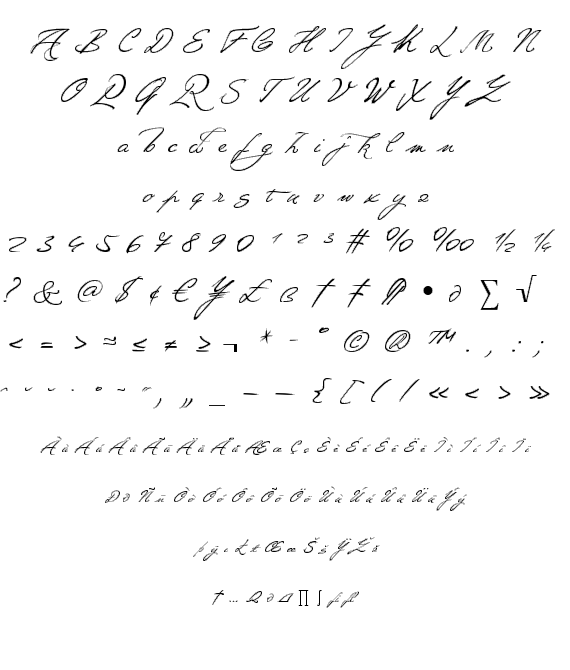 A B C D E F G H I J K L M N
O P Q R S T U V W X Y Z
a b c d e f g h i j k l m n
o p q r s t u v w x y z
2 3 4 5 6 7 8 9 0 ¹ ² ³ # % ‰ ½ ¼
? & @ $ ¢ € ¥ £ ß † ‡ ¶ • ∂ ∑ √
< = > ≈ ≤ ≠ ≥ ¬ * - ° © ® ™ . , : ;
ˆ ˇ ˘ ˙ ˚ ˜ ˝ ‚ „ _ – — { [ ( / « < > »
À à Á á Â â Ã ã Ä ä Å å Æ æ Ç ç È è É é Ê ê Ë ë Ì ì Í í Î î Ï ï
Ð ð Ñ ñ Ò ò Ó ó Ô ô Õ õ Ö ö Ù ù Ú ú Û û Ü ü Ý ý
þ ÿ ı Ł ł Œ œ Š š Ÿ Ž ž
† … Ω ∂ ∆ ∏ ∫ ﬁ ﬂ